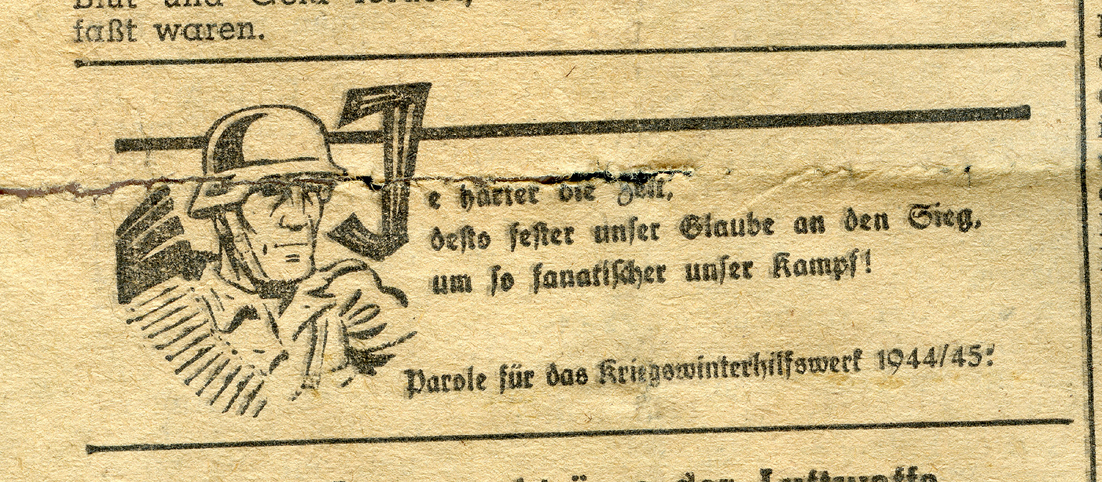 Blut und Geld
faßt waren.
Je härter die Zeit,
desto fester unser Glaube an den Sieg,
um so fanatischer unser Kampf!
Parole für das Kriegswinterhilfswerk 1944/45:
der Luftwaffe